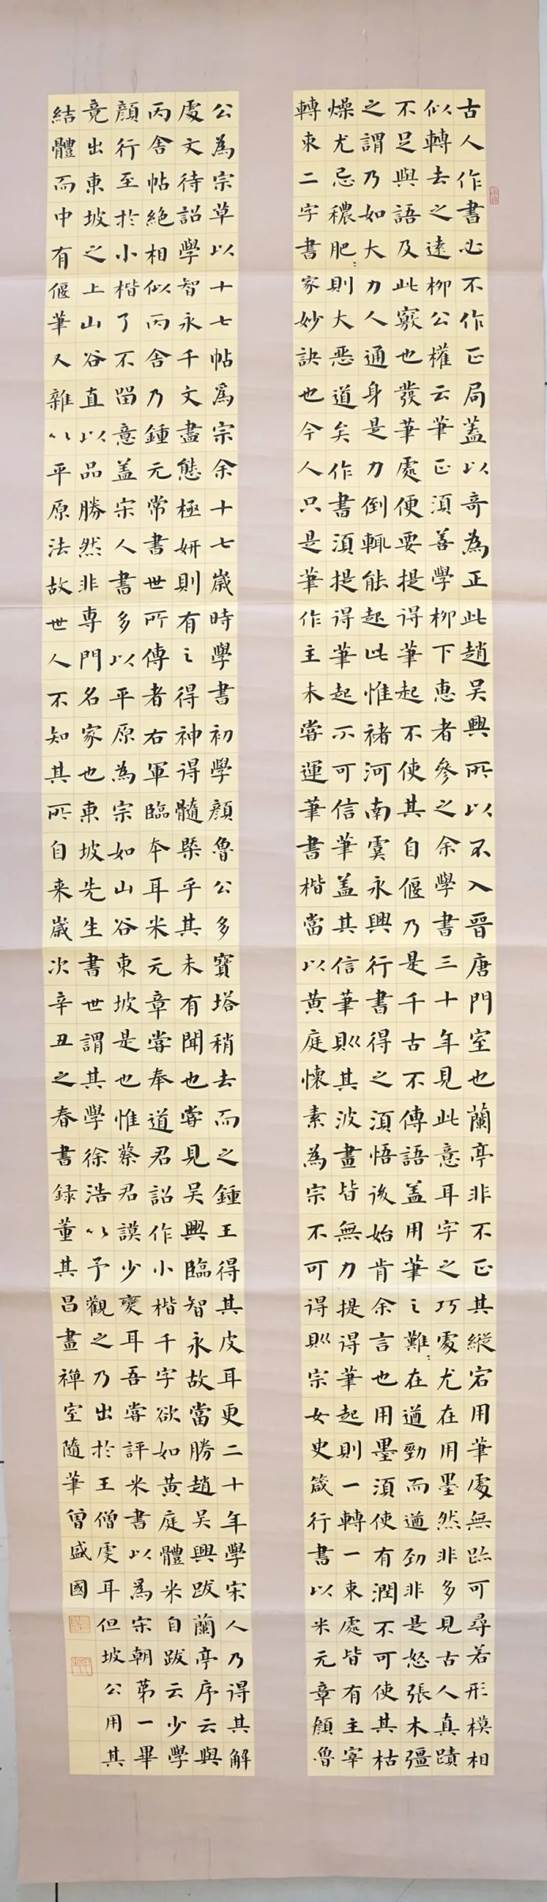 古人作書必不作正局蓋以奇為正此趙吳興所以不入晉唐門室也蘭亭非不正其縱宕用筆處無跡可尋若形模相
似轉去之遠柳公權云筆正須善學柳下惠者參之余學書三十年見此意耳字之巧處尤在用墨然非多見古人真蹟
不足與語及此竅也發筆處便要提得筆起不使其自偃乃是千古不傳語蓋用筆之難在遒勁而遒勁非是怒張木彊
之謂乃如大力人通身是力倒輒能起此惟褚河南虞永興行書得之須悟後始肯余言也用墨須使有潤不可使其枯
燥尤忌穠肥〻則大惡道矣作書須提得筆起不可信筆蓋其信筆則其波畫皆無力提得筆起則一轉一束處皆有主宰
轉束二字書家妙訣也今人只是筆作主未嘗運筆書楷當以黃庭懷素為宗不可得則宗女史箴行書以米元章顏魯
公為宗草以十七帖為宗余十七歲時學書初學顏魯公多寶塔稍去而之鍾王得其皮耳更二十年學宋人乃得其解
處文待詔學智永千文盡態極妍則有之得神得髓槩乎其未有聞也嘗見吳興臨智永故當勝趙吳興跋蘭亭序云與
丙舍帖絕相似丙舍乃鍾元常書世所傳者右軍臨本耳米元章嘗奉道君詔作小楷千字欲如黃庭體米自跋云少學
顏行至於小楷了不留意蓋宋人書多以平原為宗如山谷東坡是也惟蔡君謨少變耳吾嘗評米書以為宋朝第一畢
竟出東坡之上山谷直以品勝然非專門名家也東坡先生書世謂其學徐浩以予觀之乃出於王僧虔耳但坡公用其
結體而中有偃筆又雜以平原法故世人不知其所自来歲次辛丑之春書録董其昌畫禪室隨筆曾盛國